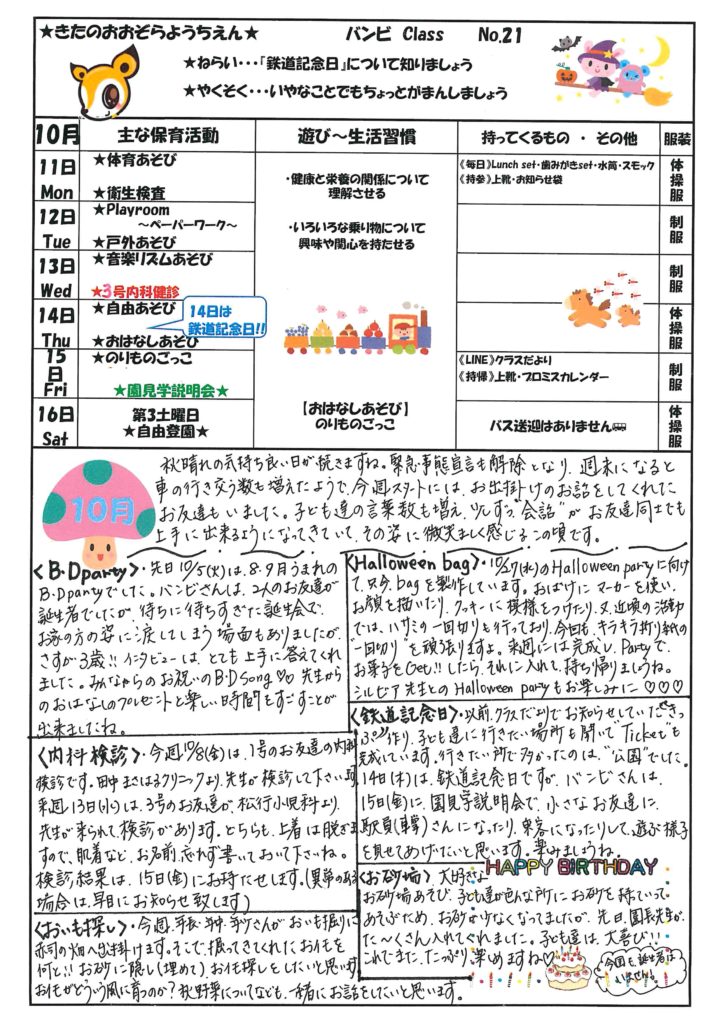 ★きたのおおぞらようちえん★ バンビ Class No.21
★ねらい・・・「鉄道記念日」について知りましょう
★やくそく・・・いやなことでもちょっとがまんしましょう
10月 主な保育活動 遊び～生活習慣 持ってくるもの ・ その他 服装
11日 Mon
★体育あそび
★衛生検査
・健康と栄養の関係について
理解させる
《毎日》Lunch set・歯みがきset・水筒・スモック
《持参》上靴・お知らせ袋
体操服
12日 Tue
★Playroom
～ペーパーワーク～
★戸外あそび
・いろいろな乗り物について
興味や関心を持たせる
制服
13日 Wed
★音楽リズムあそび
★3号内科健診
制服
14日 Thu
★自由あそび
★おはなしあそび
14日は
鉄道記念日!!
体操服
15日 Fri
★のりものごっこ
★園見学説明会★
《LINE》クラスだより
《持帰》上靴・プロミスカレンダー
制服
16日 Sat
第3土曜日
★自由登園★
【おはなしあそび】
のりものごっこ
バス送迎はありません
体操服
10月
秋晴れの気持ち良い日が続きますね。緊急事態宣言も解除となり、週末になると
車の行き交う数も増えたようで、今週スタートには、お出掛けのお話をしてくれた
お友達もいました。子ども達の言葉数も増え、少しずつ"会話"がお友達同士でも
上手に出来るようになってきていて、その姿に微笑ましく感じるこの頃です。
<B・Dparty>・先日10/5(火)は、8・9月うまれの
B・Dpartyでした。バンビさんは、2人のお友達が
誕生者でしたが、待ちに待ちすぎた誕生会で、
お家の方の姿に涙してしまう場面もありましたが、
さすが3歳!! インタビューは、とても上手に答えてくれ
ました。みんなからのお祝いのB・DSong♡♡先生から
のおはなしのプレゼントと楽しい時間をすごすことが
出来ましたね。
<Halloween bag>・10/27(水)のHalloween partyに向け
て、只今、bagを製作しています。おばけに マーカーを使い、
お顔を描いたり、クッキーに模様をつけたり、又、近頃の活動
では、ハサミの一回切りも行っており、今回も、キラキラ折り紙の
一回切り"を頑張りますよ。来週には完成し、Partyで、
お菓子をGet!! したら、それに入れて、持ち帰りましょうね。
シルビア先生とのHalloween partyもお楽しみに♡♡♡
<内科検診>・今週10/8(金)は、1号のお友達の内科
検診です。田中まさはるクリニックより、先生が検診して下さいます。
来週13日(水)は、3号のお友達が、松行小児科より、
先生が来られて、検診があります。どちらも、上着は脱ぎま
すので、肌着など、お名前、忘れず書いておいて下さいね。
検診結果は、15日(金)にお持たせします。(異常のある
場合は、早目にお知らせ致します)
<鉄道記念日>・以前、クラスだよりでお知らせしていた"きっ
ぷ"作り、子ども達に行きたい場所も聞いて"Ticket"も
完成しています。行きたい所で多かったのは、"公園"でした。
14日(木)は、鉄道記念日ですが、バンビさんは、
15日(金)に、園見学説明会で、小さなお友達に、
駅員(車掌)さんになったり、乗客になったりして、遊ぶ様子
を見せてあげたいと思います。楽しみましょうね。
HAPPY BIRTHDAY
<お砂場> 大好きな
お砂場あそび、子ども達が色んな所にお砂を持っていって
あそぶため、お砂が少なくなってましたが、先日、園長先生が、
た～くさん入れてくれました。子ども達は、大喜び!!
これでまた、たっぷり、楽しめますね♡
今回も、誕生者は
いません。
<おいも探し>・今週、年長・年中・年少さんが おいも掘りに
赤司の畑へ出掛けます。そこで、掘ってきてくれたおイモを
何と!! お砂に隠し(埋めて)、おイモ探しをしたいと思います。
おイモがどういう風に育つのか?秋野菜についてなども、一緒にお話をしたいと思います。